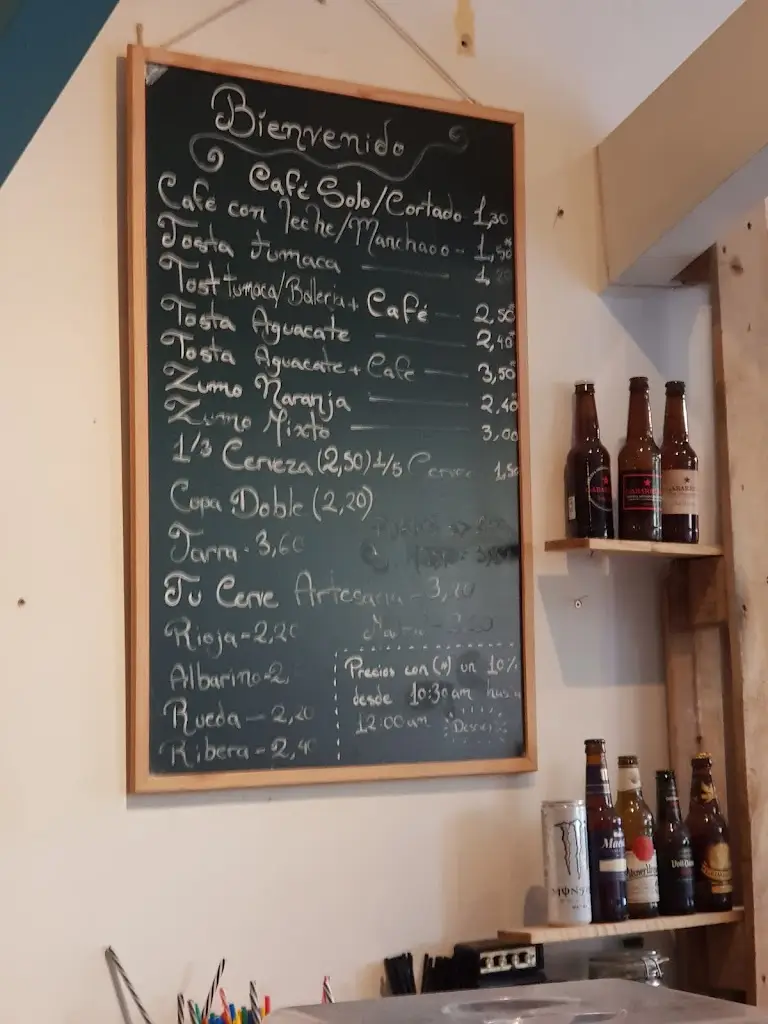 Bienvenido
Café Solo/Cortado 1,30
Café con leche/Manchado - 1,50*
Tosta tumaca — 1,20
Tost tumaca/Bolleria + Café — 2,50*
Tosta Aguacate — 2,40*
Tosta Aguacate + Cafe — 3,50*
Zumo Naranja — 2,40*
Zumo Mixto — 3,00
1/3 Cerveza (2,50) 1/5 Cerve 1,50
Copa Doble (2,20)
Jarra - 3,60
Tu Cerve Artesana - 3,20
Rioja - 2,20
Albarino - 2,
Rueda — 2,20
Ribera - 2,40
Precios con (*) un 10%
desde 10:30am hasta
12:00am